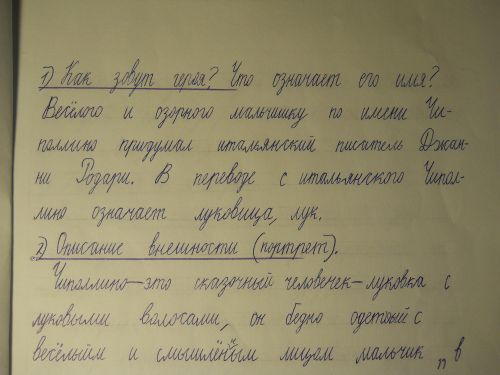 1) Как зовут героя? Что означает его имя?
Весёлого и озорного мальчишку по имени Чи-
поллино придумал итальянский писатель Джан-
ни Родари. В переводе с итальянского Чипол-
лино означает луковица, лук.
2) Описание внешности (портрет).
Чиполлино—это сказочный человечек-луковка с
луковыми волосами, он бедно одетый с
весёлым и смышлёным лицом мальчик в